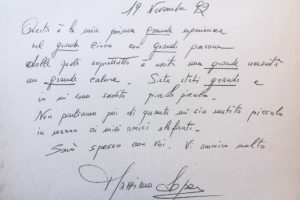 19 Novembre 92
Questa è la mia prima grande esperienza
nel grande Circo con grandi persone
dalle quali soprattutto è nata una umanità
un grande calore. Siete stati grandi e
io mi sono sentito piccolo piccolo.
Non parliamo poi di quanto mi sia sentito piccolo
in mezzo ai miei amici elefanti.
Sarò spesso con voi. Vi ammiro molto
Massimo Lopez